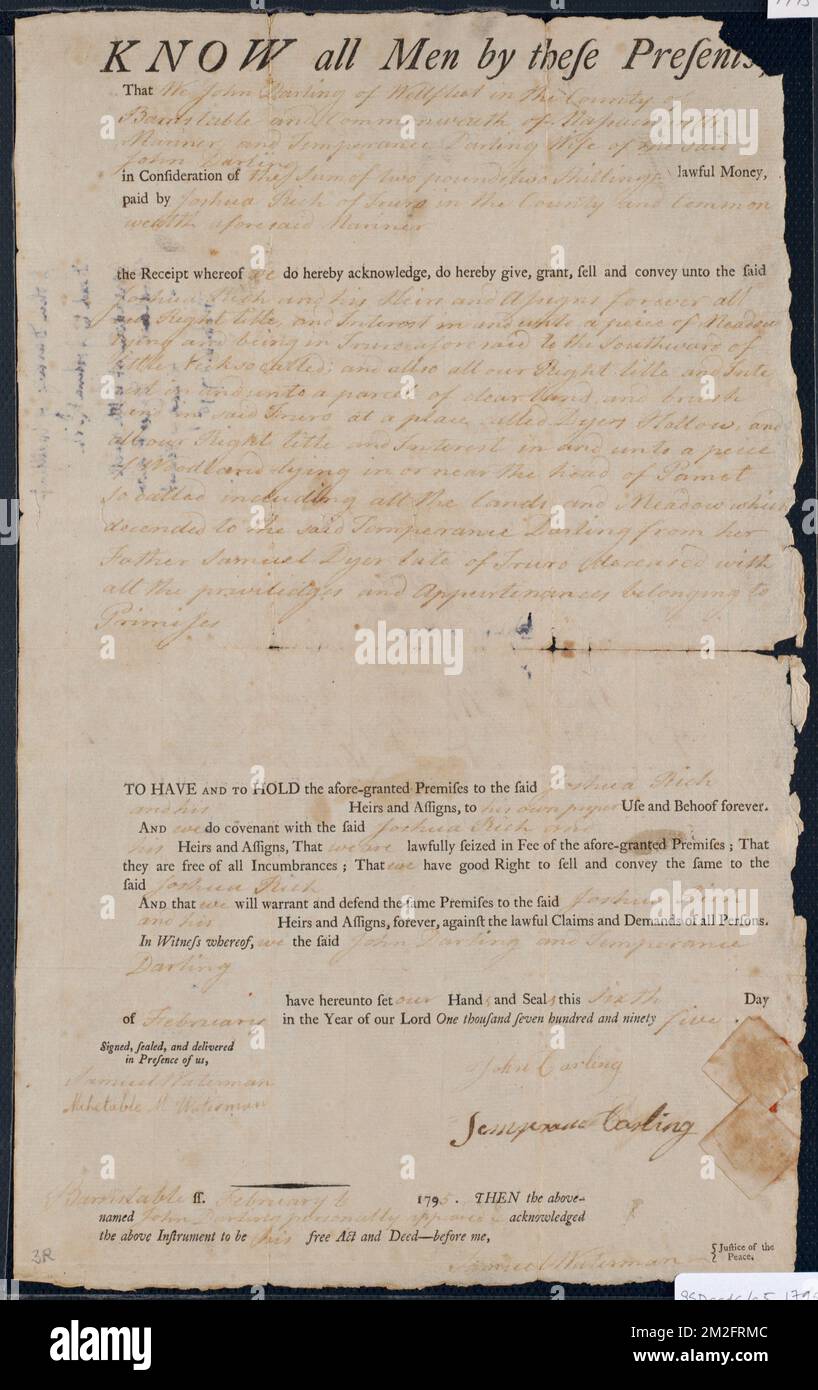 KNOW all Men by theſe Preſents,
That We John Darling of Wellfleet in the County of
Barnstable and Commonwealth of Massachusetts
Mariner and Temperance Darling Wife of the said
John Darling
in Conſideration of the Sum of two pounds two Shillings lawful Money,
paid by Joshua Rich of Truro in the County and Common
wealth aforesaid Mariner
the Receipt whereof we do hereby acknowledge, do hereby give, grant, ſell and convey unto the ſaid
Joshua Rich and his Heirs and Assigns forever all
our Right title, and Interest in and unto a peice of Meadow
lying and being in Truro aforesaid to the Southward of
little so called; and also all our Right title and Inte
rest in and unto a parcel of clear land, and brush
land in said Truro at a place called Dyers Hollow, and
all our Right title and Interest in and unto a peice
of Woodland lying in or near the head of Pamet
so called including all the lands and Meadow which
decended to the said Temperance Darling from her
Father Samuel Dyer late of Truro Deceased with
all the priviledges and Appurtenances belonging to
Primises
TO HAVE AND TO HOLD the afore-granted Premiſes to the ſaid Joshua Rich
and his Heirs and Aſſigns, to his own proper Uſe and Behoof forever.
AND we do covenant with the ſaid Joshua Rich and
his Heirs and Aſſigns, That we are lawfully ſeized in Fee of the afore-granted Premiſes ; That
they are free of all Incumbrances ; That we have good Right to ſell and convey the ſame to the
ſaid Joshua Rich
AND that we will warrant and defend the ſame Premiſes to the ſaid Joshua Rich
and his Heirs and Aſſigns, forever, againſt the lawful Claims and Demands of all Perſons.
In Witneſs whereof, we the ſaid John Darling and Temperance
Darling
have hereunto ſet our Hands and Seals this Sixth Day
of February in the Year of our Lord One thouſand ſeven hundred and ninety five.
Signed, ſealed, and delivered
in Preſence of us,
Samuel Waterman
Mehetable M Waterman
John Darling
Temperance Darling
Barnstable ſſ. February 6 1795. THEN the above-
named John Darling personally appeared acknowledged
the above Inſtrument to be his free Act and Deed—before me,
Samuel Waterman
Juſtice of the
Peace.
3R
alamy
Image ID: 2M2FRMC
www.alamy.com